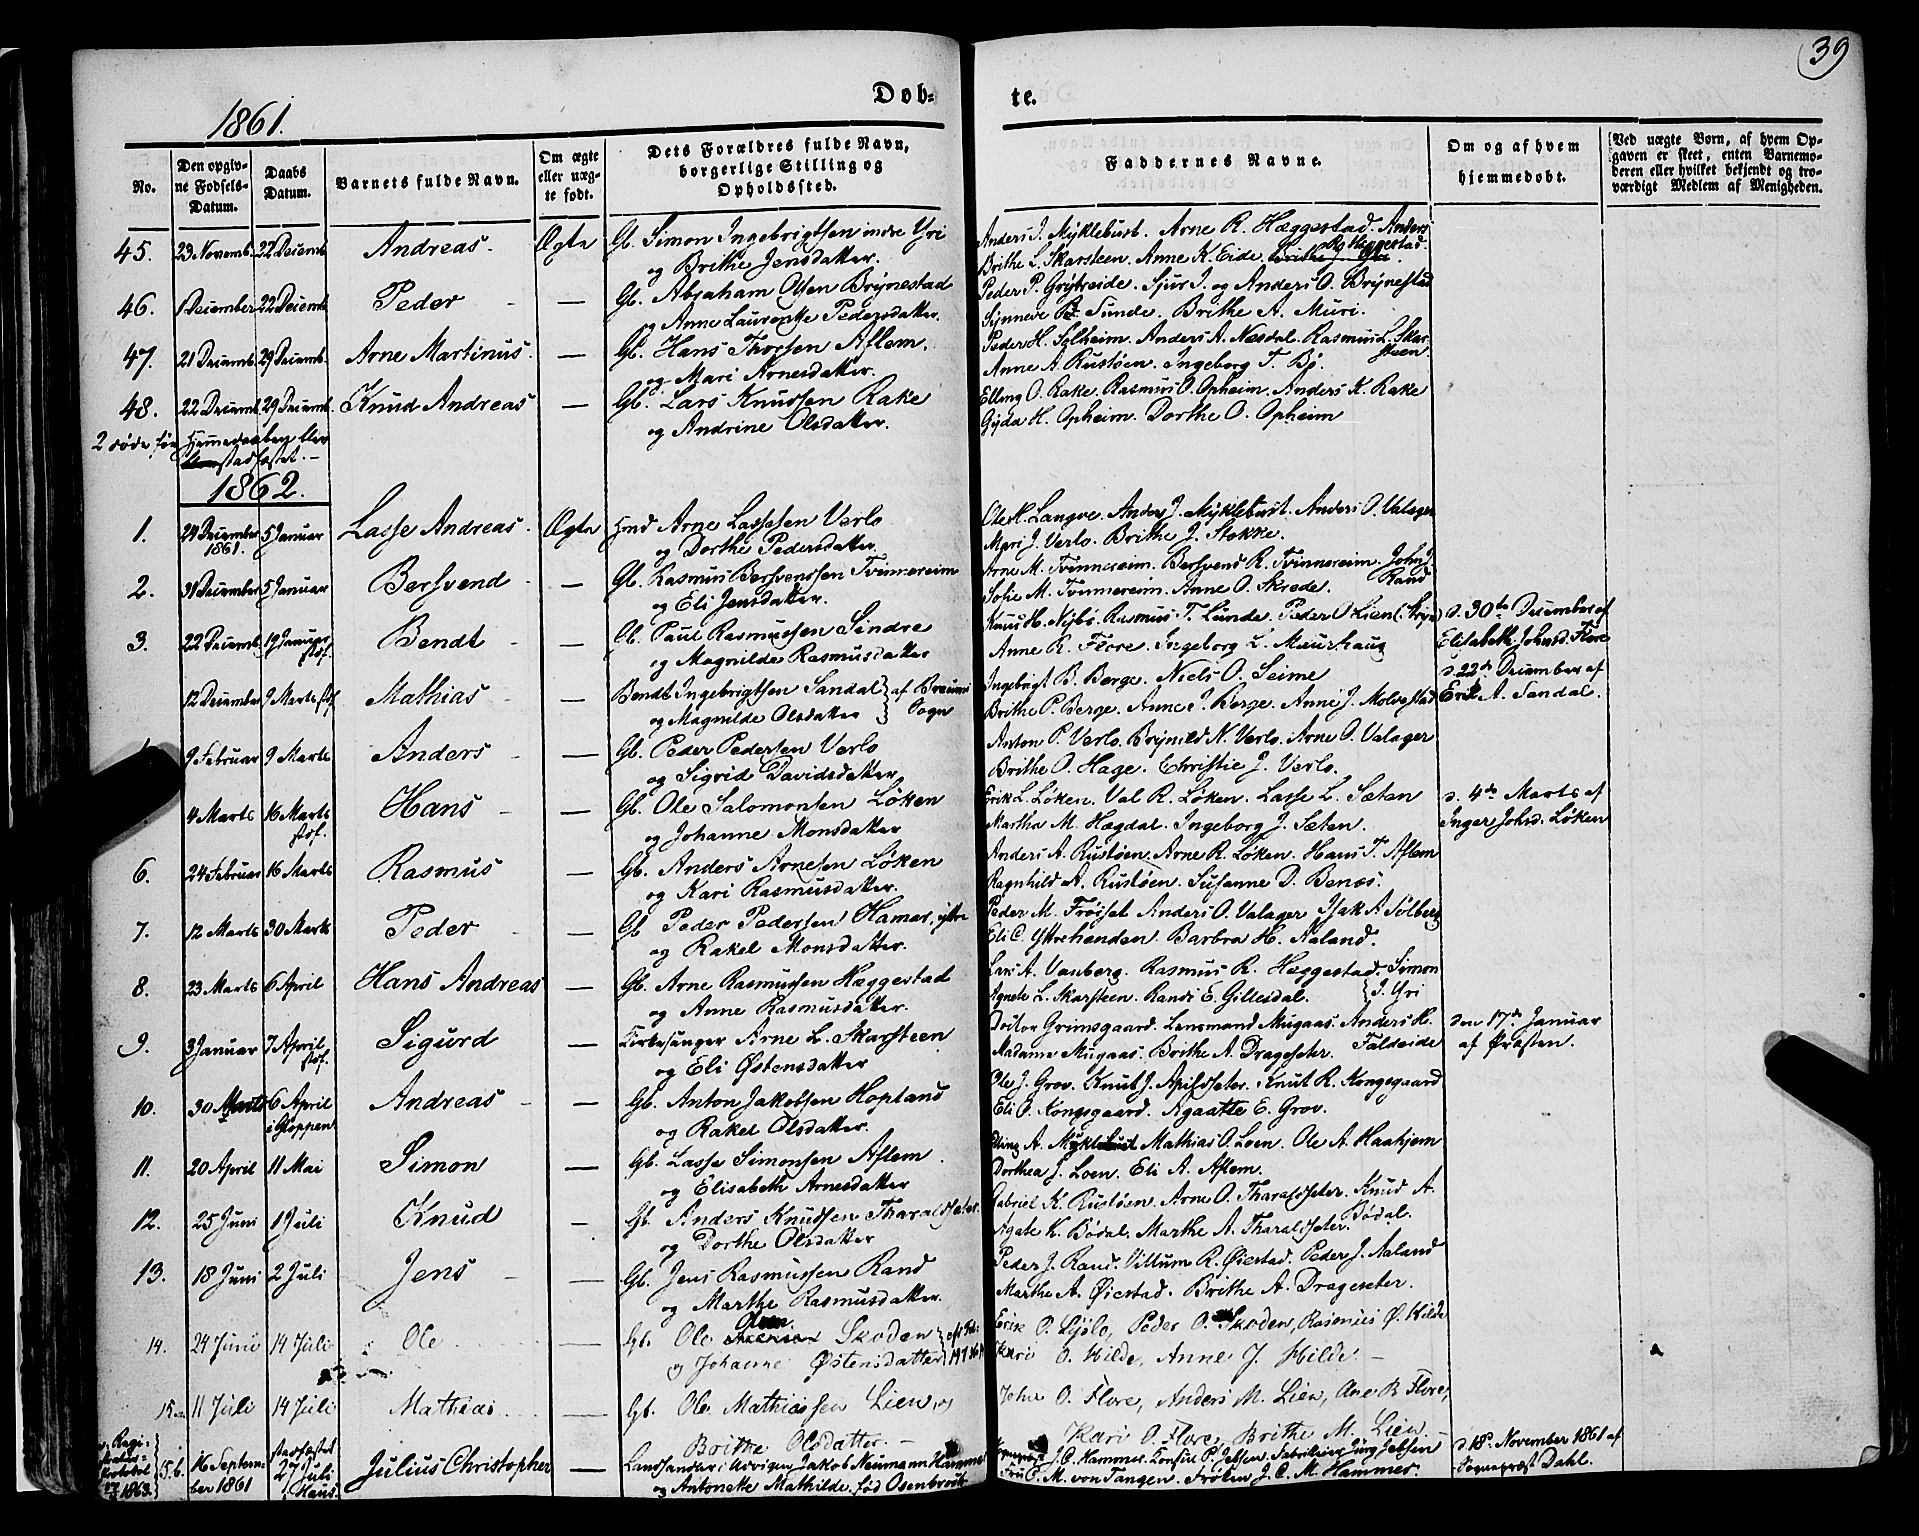 39
Døb- te.
1861.
No.
Den opgivne Fødsels-Datum.
Daabs Datum.
Barnets fulde Navn.
Om ægte eller uægte født.
Dets Forældres fulde Navn, borgerlige Stilling og Opholdssted.
Faddernes Navne.
Om og af hvem hjemmedøbt.
Ved uægte Børn, af hvem Opgaven er skeet, enten Barnemoderen eller hvilket bekjendt og troværdigt Medlem af Menigheden.
45. 23 Novemb. 22 Decemb. Andreas. Ægte Gb. Simon Ingebrigtsen indre Yri Anders J. Myklebust. Arne R. Hæggestad. Anders
og Brithe Jensdatter. Brithe L. Skarsteen. Anne K. Eide.
46. 1 December 22 Decemb. Peder — Gb. Abraham Olsen Brynestad Peder P. Grytreide. Sjur J. og Anders O. Brynestad
og Anne Laurentse Pedersdatter. Synneve B. Sunde. Brithe A. Muri.
47. 21 Decemb. 29 Decemb. Arne Martinus. — Gb. Hans Thorsen Aflem. Peder H. Solheim. Anders A. Nesdal. Rasmus L. Skarsteen.
og Mari Arnesdatter. Anne A. Rustøen. Ingeborg T. Bø.
48. 22 Decemb. 29 Decemb. Knud Andreas — Gb. Lars Knutsen Rake Elling O. Rake. Rasmus O. Opheim. Anders K. Rake
og Andrine Olsdatter. Gyda H. Opheim. Dorthe O. Opheim
2 døde før Hjemmedaaben blev stadfæstet. —
1862.
1. 24 December 1861. 5 Januar Lasse Andreas. Ægte Hmd Arne Lassesen Verlo Ole H. Langve. Anders J. Myklebust. Anders O. Valager
og Dorthe Pedersdatter. Mari J. Verlo. Brithe J. Stokke.
2. 31 December 5 Januar Bersvend — Gb. Rasmus Bersvendsen Tvinnereim Arne M. Tvinnereim. Bersvend R. Tvinnereim. John J. Rand
og Eli Jensdatter. Sofie M. Tvinnereim. Anne O. Skrede.
3. 22 Decemb. 19 Januar stdf. Bendt — Gb. Paul Rasmussen Sindre Knut H. Nybø. Rasmus T. Lunde. Peder O. Lien (Stryn) d. 30te December af
og Magnilde Rasmusdatter Anne R. Flore. Ingeborg L. Maurhaug Elisabeth Johnsd. Flore
12 December 9 Marts stdf. Mathias — Bendt Ingebrigtsen Sandal af Breums Sogn Ingebrigt B. Berge. Niels O. Seime d. 22de December af
og Magnilde Olsdatter Brithe P. Berge. Anne J. Berge. Anne J. Molvestad Erik A. Sandal.
9 Februar 9 Marts Anders — Gb. Peder Pedersen Verlo Anton P. Verlo. Brynild N. Verlo. Arne O. Valager
og Sigrid Davidsdatter Brithe O. Hage. Christie J. Verlo.
4 Marts 16 Marts stdf. Hans — Gb. Ole Salomonsen Løken Erik L. Løken. Val R. Løken. Lasse L. Sæten d. 4de Marts af
og Johanne Monsdatter Martha M. Hægdal. Ingeborg J. Sæten. Inger Johsd. Løken
6. 24 Februar 16 Marts Rasmus — Gb. Anders Arnesen Løken Anders A. Rustøen. Arne R. Løken. Hans T. Aflem
og Kari Rasmusdatter. Ragnhild A. Rustøen. Susanne D. Benæs.
7. 12 Marts 30 Marts Peder — Gb Peder Pedersen Hamar, ytre Peder M. Frøiset Anders O. Valager Isak A Solberg
og Rakel Monsdatter. Eli C. Yttrehenden. Barbra H. Aaland.
8. 23 Marts 6 April Hans Andreas — Gb. Arne Rasmussen Hæggestad Lars A. Vanberg. Rasmus R. Hæggestad. Simon J. Yri
og Anne Rasmusdatter. Agnete L. Skarsteen. Randi E. Gillesdal.
9. 3 Januar 7 April stdf. Sigurd — Kirkesanger Arne L. Skarsteen Doctor Grimsgaard. Lensmand Mugaas. Anders H. Faldeide den 17de Januar
og Eli Østensdatter Madame Mugaas. Brithe A. Drageseter. af Præsten.
10. 30 Marts 6 April i Gloppen Andreas — Gb. Anton Jakobsen Hopland Ole J. Grov. Knut J. Apilseter. Knut R. Kongsgaard
og Rakel Olsdatter. Eli O. Kongsgaard. Agaatte E. Grov.
11. 20 April 11 Mai Simon — Gb. Lasse Simonsen Aflem Elling A. Myklebust Mathias O. Loen. Ole A. Haahjem
og Elisabeth Arnesdatter Dorthea J. Loen. Eli A. Aflem.
12. 25 Juni 1 Juli Knud — Gb. Anders Knudsen Tharaldseter. Gabriel K. Rustøen. Arne O. Tharaldseter. Knud A. Bødal.
og Dorthe Olsdatter Agate K. Bødal. Marthe A. Tharaldseter.
13. 18 Juni 2 Juli Jens — Gb. Jens Rasmussen Rand Peder J. Rand. Villum R. Øiestad. Peder J. Aaland
og Marthe Rasmusdatter. Marthe A. Øiestad. Brithe A. Drageseter.
14. 24 Juni 14 Juli Ole — Gb. Ole Olsen Skoden Erik P. Ljslo, Peder O. Skoden, Rasmus Ø. Hilde
og Johanne Østensdatter Kari O. Hilde, Anne J. Hilde. —
15. 11 Juli 14 Juli Mathias — Gb. Ole Mathiassen Lien, og John O. Flore, Anders M. Lien, Ane B Flore,
Brithe Olsdatter. — Kari O. Flore, Brithe M. Lien.
1863. 16 September 1861 stadfæstet 27 Juli i Haus. Julius Christopher — Landhandler i Udvigen Jakob Neumann Hammer J. C. Hammer. Consul P. Jebsen. Fabrikeier Jürg Jebsen — d. 18. November 1861 af
og Antonette Mathilde, fød Osenbrock. Fru C. M. von Tangen. Frøken J. C. M. Hammer. Sognepræst Dahl.